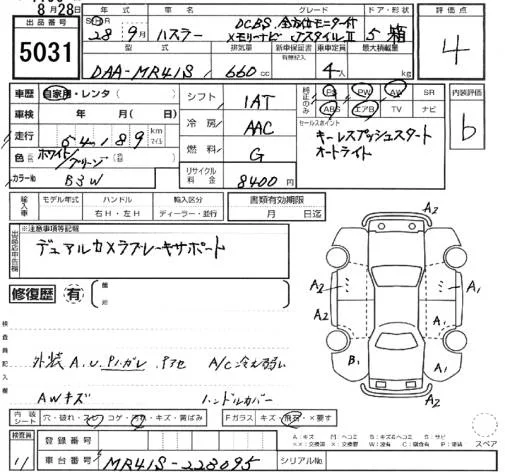 8月28日
出品番号 5031
年式 車名 グレード ドア・形状 評価点
28年 9月 ハスラー
DCBS. 全方位モニター付
メモリーナビ JスタイルII
5 箱 4
型式 排気量 新車保証書 有無記入 乗車定員 最大積載量
DAA-MR41S 660cc 4人 kg
車歴 自家用・レンタ( )
車検 年 月( 日)
走行 54,189 km マイル
色 ホワイト/グリーン ( )
カラーNo B3W
シフト IAT
冷房 AAC
燃料 G
リサイクル料金 8400円
純正のみ PS PW AW SR
ABS エアB TV ナビ
内装評価 b
セールスポイント
キーレスプッシュスタート
オートライト
輸入車 モデル年式 ハンドル 輸入区分 書類有効期限
年 右H・左H ディーラー・並行 月 日迄
出品店申告欄 ※注意事項等記載
デュアルカメラブレーキサポート
修復歴 有
検査員記入欄
外装 A.U. P1.ガレ A/C 冷え弱い
AWキズ ハンドルカバー
A2
A2 A1
A2 A1
B1 A1
A2
内装シート 穴・破れ・スレ・コゲ・汚れ・キズ・黄ばみ Fガラス キズ・飛石・×要す
検査員 11
登録番号
車台番号 MR41S-223095 シリアルNo.
A:キズ M:ヘコミ B:キズ&ヘコミ S:サビ
スペア